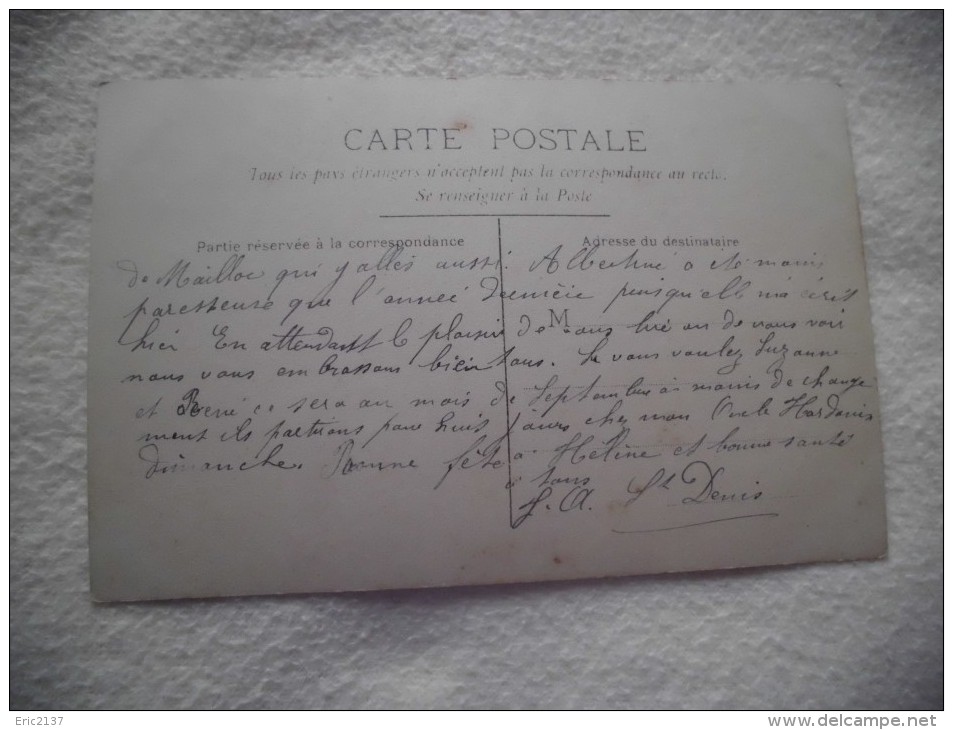 CARTE POSTALE
Tous les pays étrangers n'acceptent pas la correspondance au recto.
Se renseigner à la Poste
Partie réservée à la correspondance
Adresse du destinataire
de Mailloc qui y allès aussi. Albertine a été moins
paresseuse que l'année dernière puisqu'elle m'a écrit
hier En attendant le plaisir de M lire ou de vous voir
nous vous embrassons bien tous. Si vous voulez Suzanne
et René ce sera au mois de Septembre à moins de change
ment ils partirons pour huit jours chez mon Oncle
dimanche. Bonne fête à Hélène et bonne santé
à tous
L. A. St Denis
Eric2137
www.delcampe.net